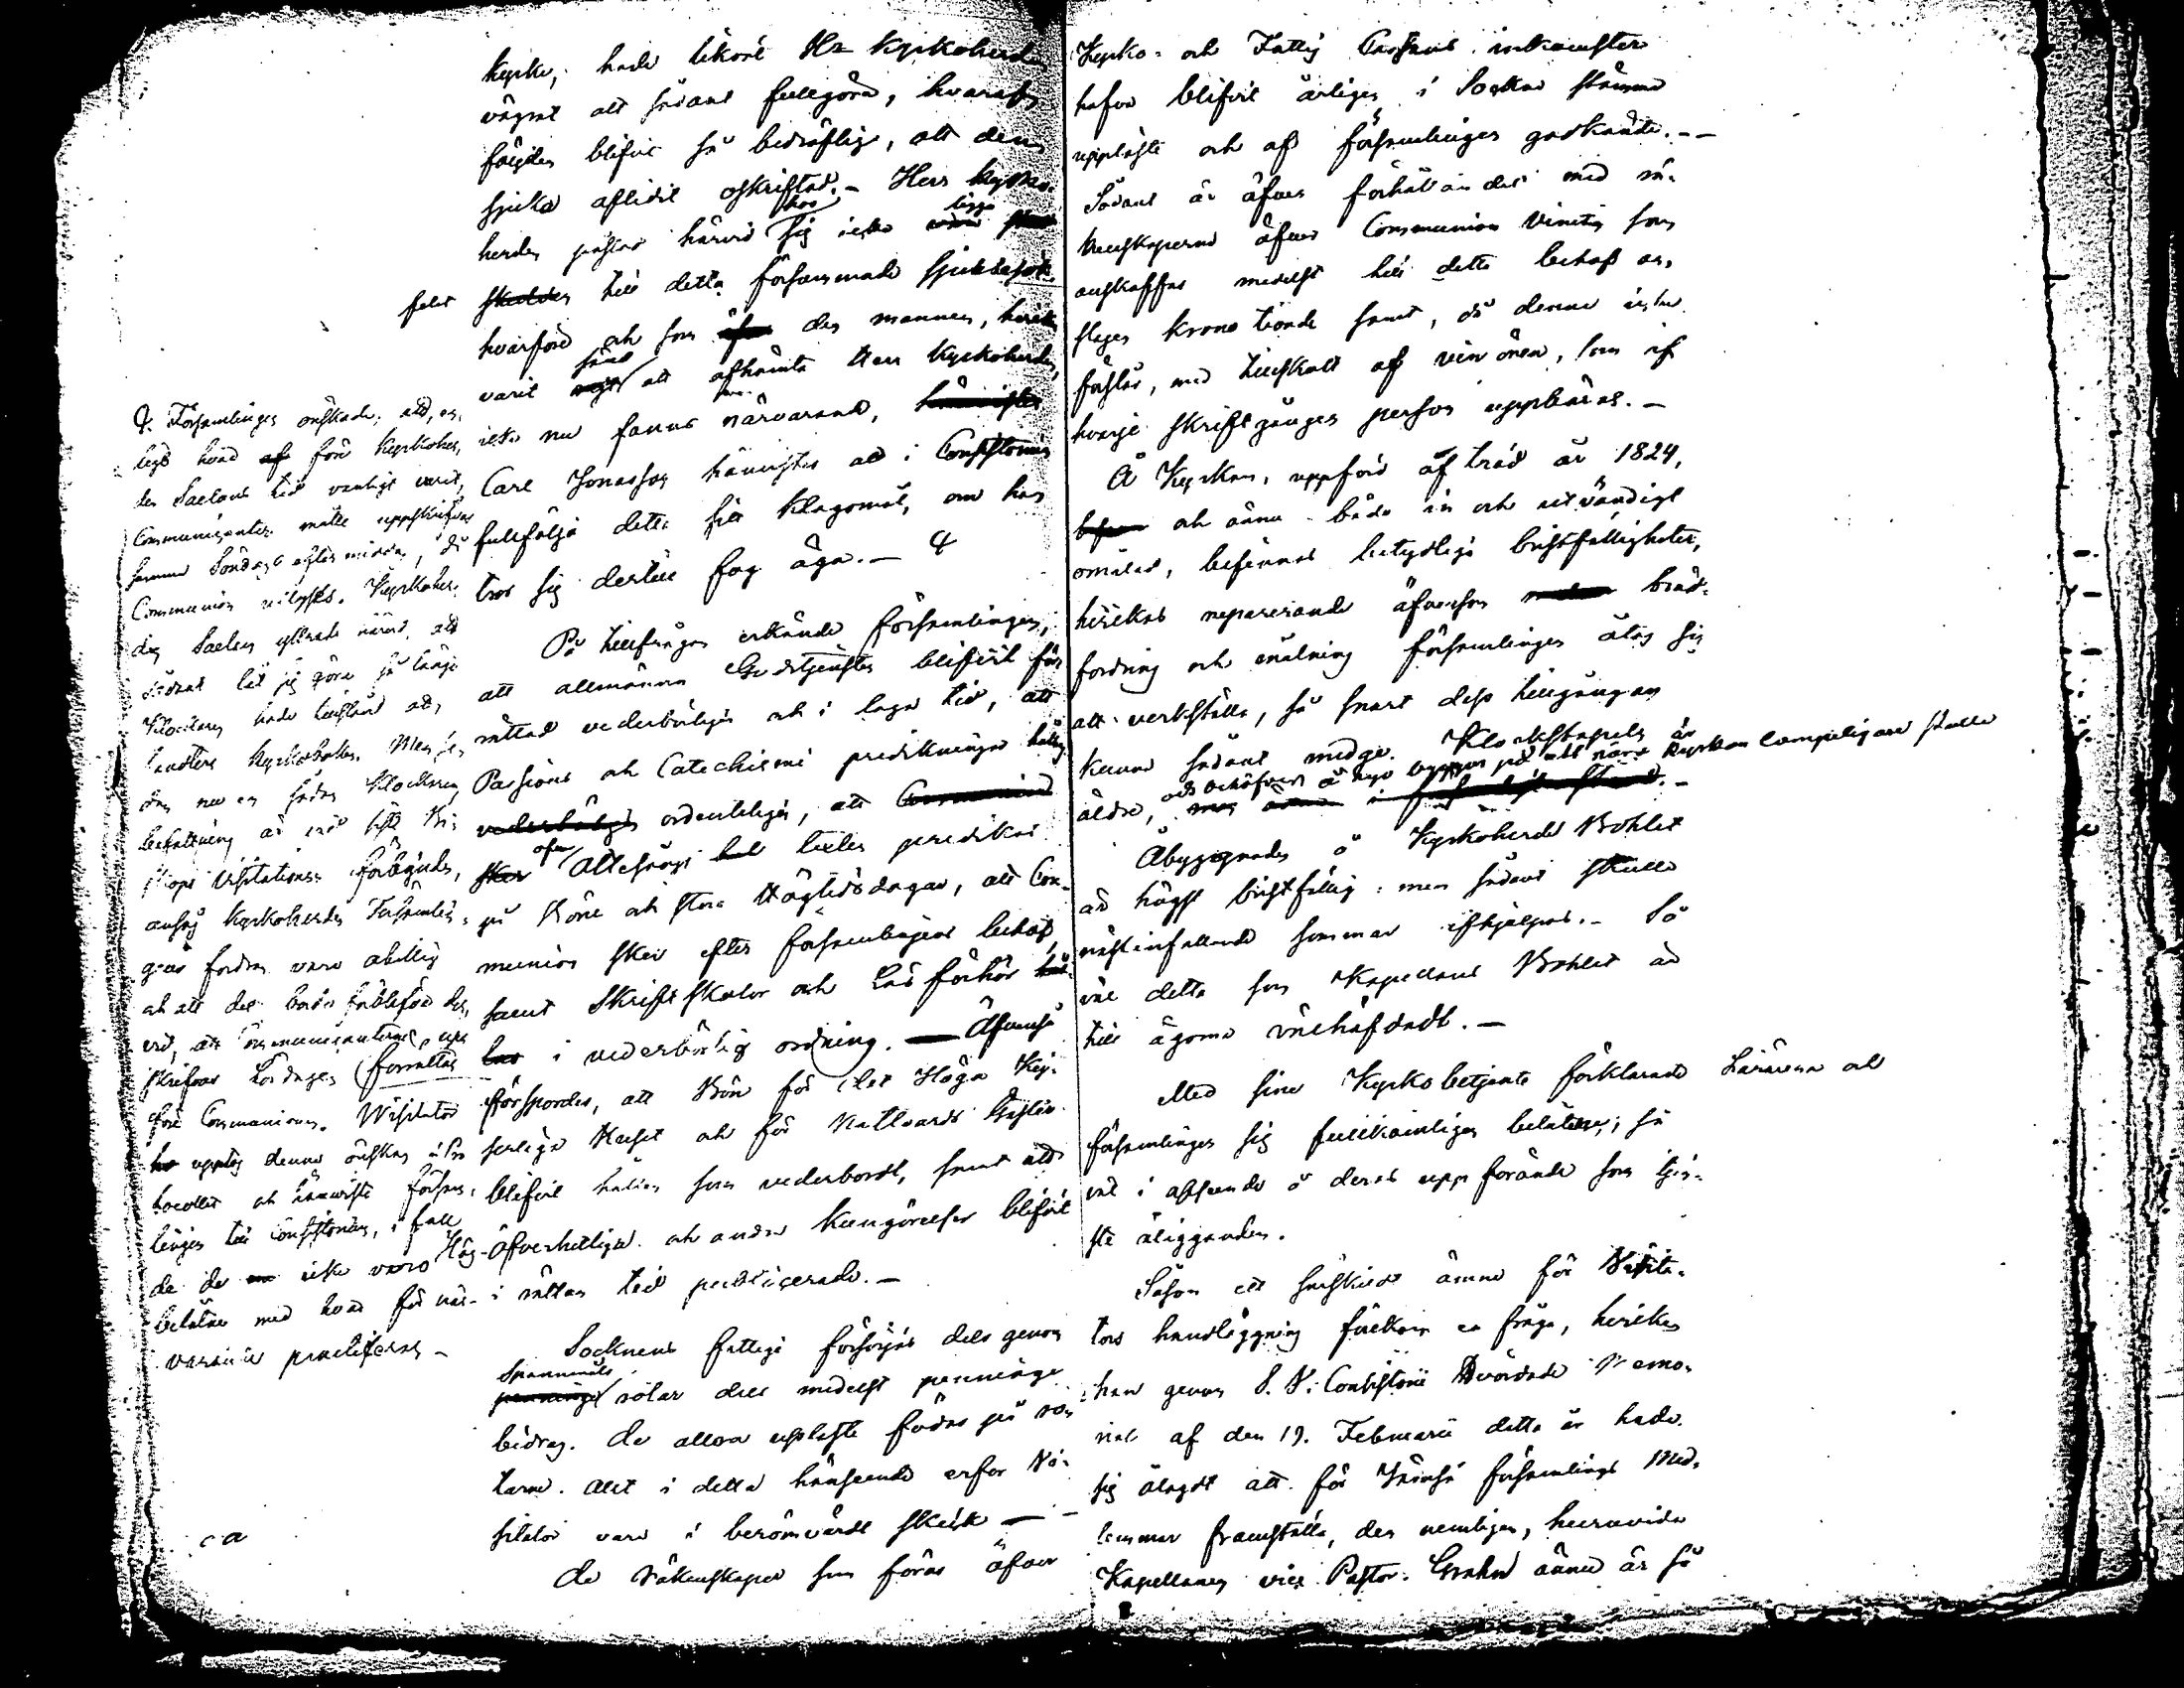 kyrka, hade likväl Hr Kyrkoherden
vägrat att sådant fullgöra, hvaraf
följden blifvit så bedröflig, att den
sjuka aflidit oskriftad. – Herr Kyrko-
herden påstod härvid hos sig icke ligga
felet till detta försummade sjukbesök.
hvarföre och som den mannen, hvilken
varit sänd att afhämta Herr Kyrkoherden,
icke nu fanns närvarande,
Carl Jonasson hänvistes att i Consistorium
fullfölja detta sitt klagomål, om han
tror sig dertill fog äga. –
På tillfrågan erkände församlingen,
att allmänna Gudstjensten blifvit för-
rättad vederbörligen och i laga tid, att
Passions och Catechismi predikningar hållits
ordentligen, att
ofver Altesångs texter predikas
på Böne och stora Högtidsdagar, att Com-
munion sker efter församlingens behof,
samt Skriftskolor och Läsförhör
i vederbörlig ordning. — Äfvenså
förspordes, att Bön för det Höga Kej-
serliga Huset och för Nattvards Gäster
blifvit hållen som vederbordt, samt att
öfverhetliga och andra Kungörelser blifvit
i rättan tid publicerade. –
Socknens fattiga försörjas dels genom
Spannmåls rotar dels medelst penninge
bidrag. De allra uslaste födas på ro-
tarne. Allt i detta hänseende erfor Vi-
sitator vara i berömvärdt skick —
De Räkenskaper som föras öfver
Församlingen önskade, att, en-
ligt hvad för Kyrkoher-
den Saelans tid vanligt varit,
Communicanter måtte uppskrifvas
samma Söndags eftermiddag, då
Communion utlystes. Kyrkoher-
den Saelan yttrade härvid, att
sådant lät sig göra så länge
Klockaren hade tillstånd att
handtera kyrkoboken. Men se-
dan nu en sådan Klockaren
befattning är vid sista Bi-
skops Visitationen förbjuden,
ansåg Kyrkoherden Församlin-
gens fordran vara obillig
och att det borde förblifva der-
vid, att Communicanterne upp-
skrifvas Lördagen
före Communionen. Visitator
upptog denna önskan
och hänviste försam-
lingen till Consistorium, i fall
de icke voro
belåtne med hvad för när-
varande practiseras –
Kyrko- och Fattig Cassans inkomster
hafva blifvit årligen i Sockne stämma
uppläste och af församlingen godkände. – –
Sådant är äfven förhållandet med rä-
kenskaperne öfver Communion Vinet, som
anskaffas medelst till detta behof an-
slagen krono tionde samt, då denna icke
förslår, med tillskott af vin ören, som af
hvarje skriftgången person uppbäras. –
Å Kyrkan, uppförd af träd år 1824,
och ännu både in och utvändigt
omålad, befunnos betydliga bristfälligheter,
hvilkas reparerande äfvensom bräd-
fordring och målning församlingen åtog sig
att verkställa, så snart dess tillgångar
kunna sådant medge. Klockstapeln är
äldre, och behöfver å nyo byggas på ett nära kyrkan lämpeligare ställe
Åbyggnaden å Kyrkoherde Bohlet
är högst bristfällig: men sådant skulle
nästinfallande sommar afhjelpas. – Så
väl detta som Kapellans Bohlet är
till ägorna välhäfdadt. –
Med sine Kyrkobetjente förklarade Lärarena och
församlingen sig fullkomligen belåtne, så
väl i afseende å deras uppförande som tjen-
ste åligganden.
Såsom ett särskildt ämne för Visita-
tors handläggning förekom en fråga, hvilken
han genom S. V. Consistorii Vördade Memo-
rial af den 19. Februarii detta år hade
sig ålagdt att för församlings Med-
lemmar framställa, den nemligen, huruvida
Kapellanen vice Pastor Grahn ännu är så